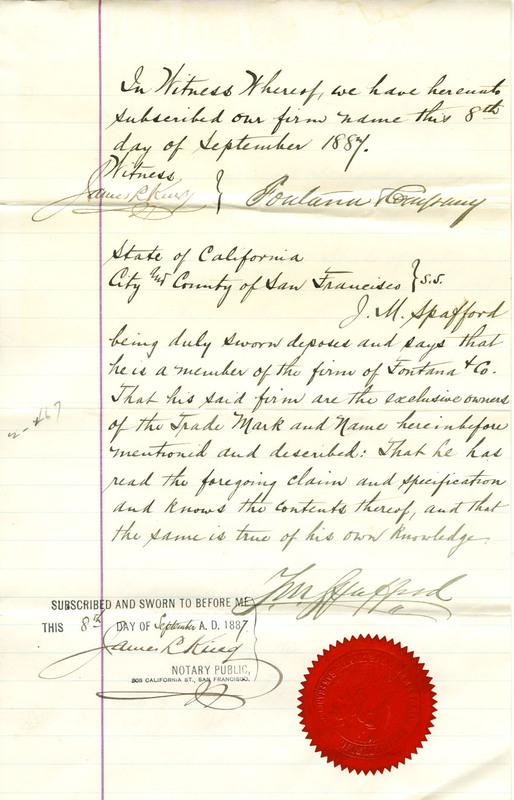 In Witness Whereof, we have hereunto
subscribed our firm name this 8th
day of September 1887.
Witness
James L King } Fontana & Company
State of California
City and County of San Francisco } S.S.
J. M. Spafford
being duly sworn deposes and says that
he is a member of the firm of Fontana & Co.
That his said firm are the exclusive owners
of the Trade Mark and Name hereinbefore
mentioned and described: That he has
read the foregoing claim and specification
and knows the contents thereof, and that
the same is true of his own knowledge.
J M Spafford
SUBSCRIBED AND SWORN TO BEFORE ME
THIS 8th DAY OF September A. D. 1887
James L King
NOTARY PUBLIC,
CALIFORNIA ST., SAN FRANCISCO.